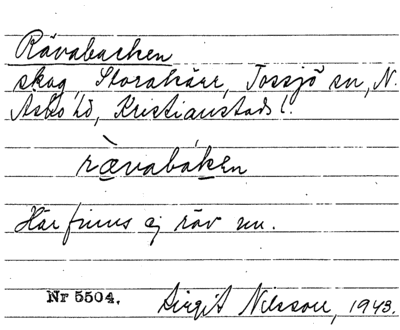 Rävabacken
skog, Storahärr, Tossjö sn, N.
Åsbo hd, Kristianstads l.
rävabáken
Här finns ej räv nu.
Nr 5504. Birgit Nilsson, 1943.